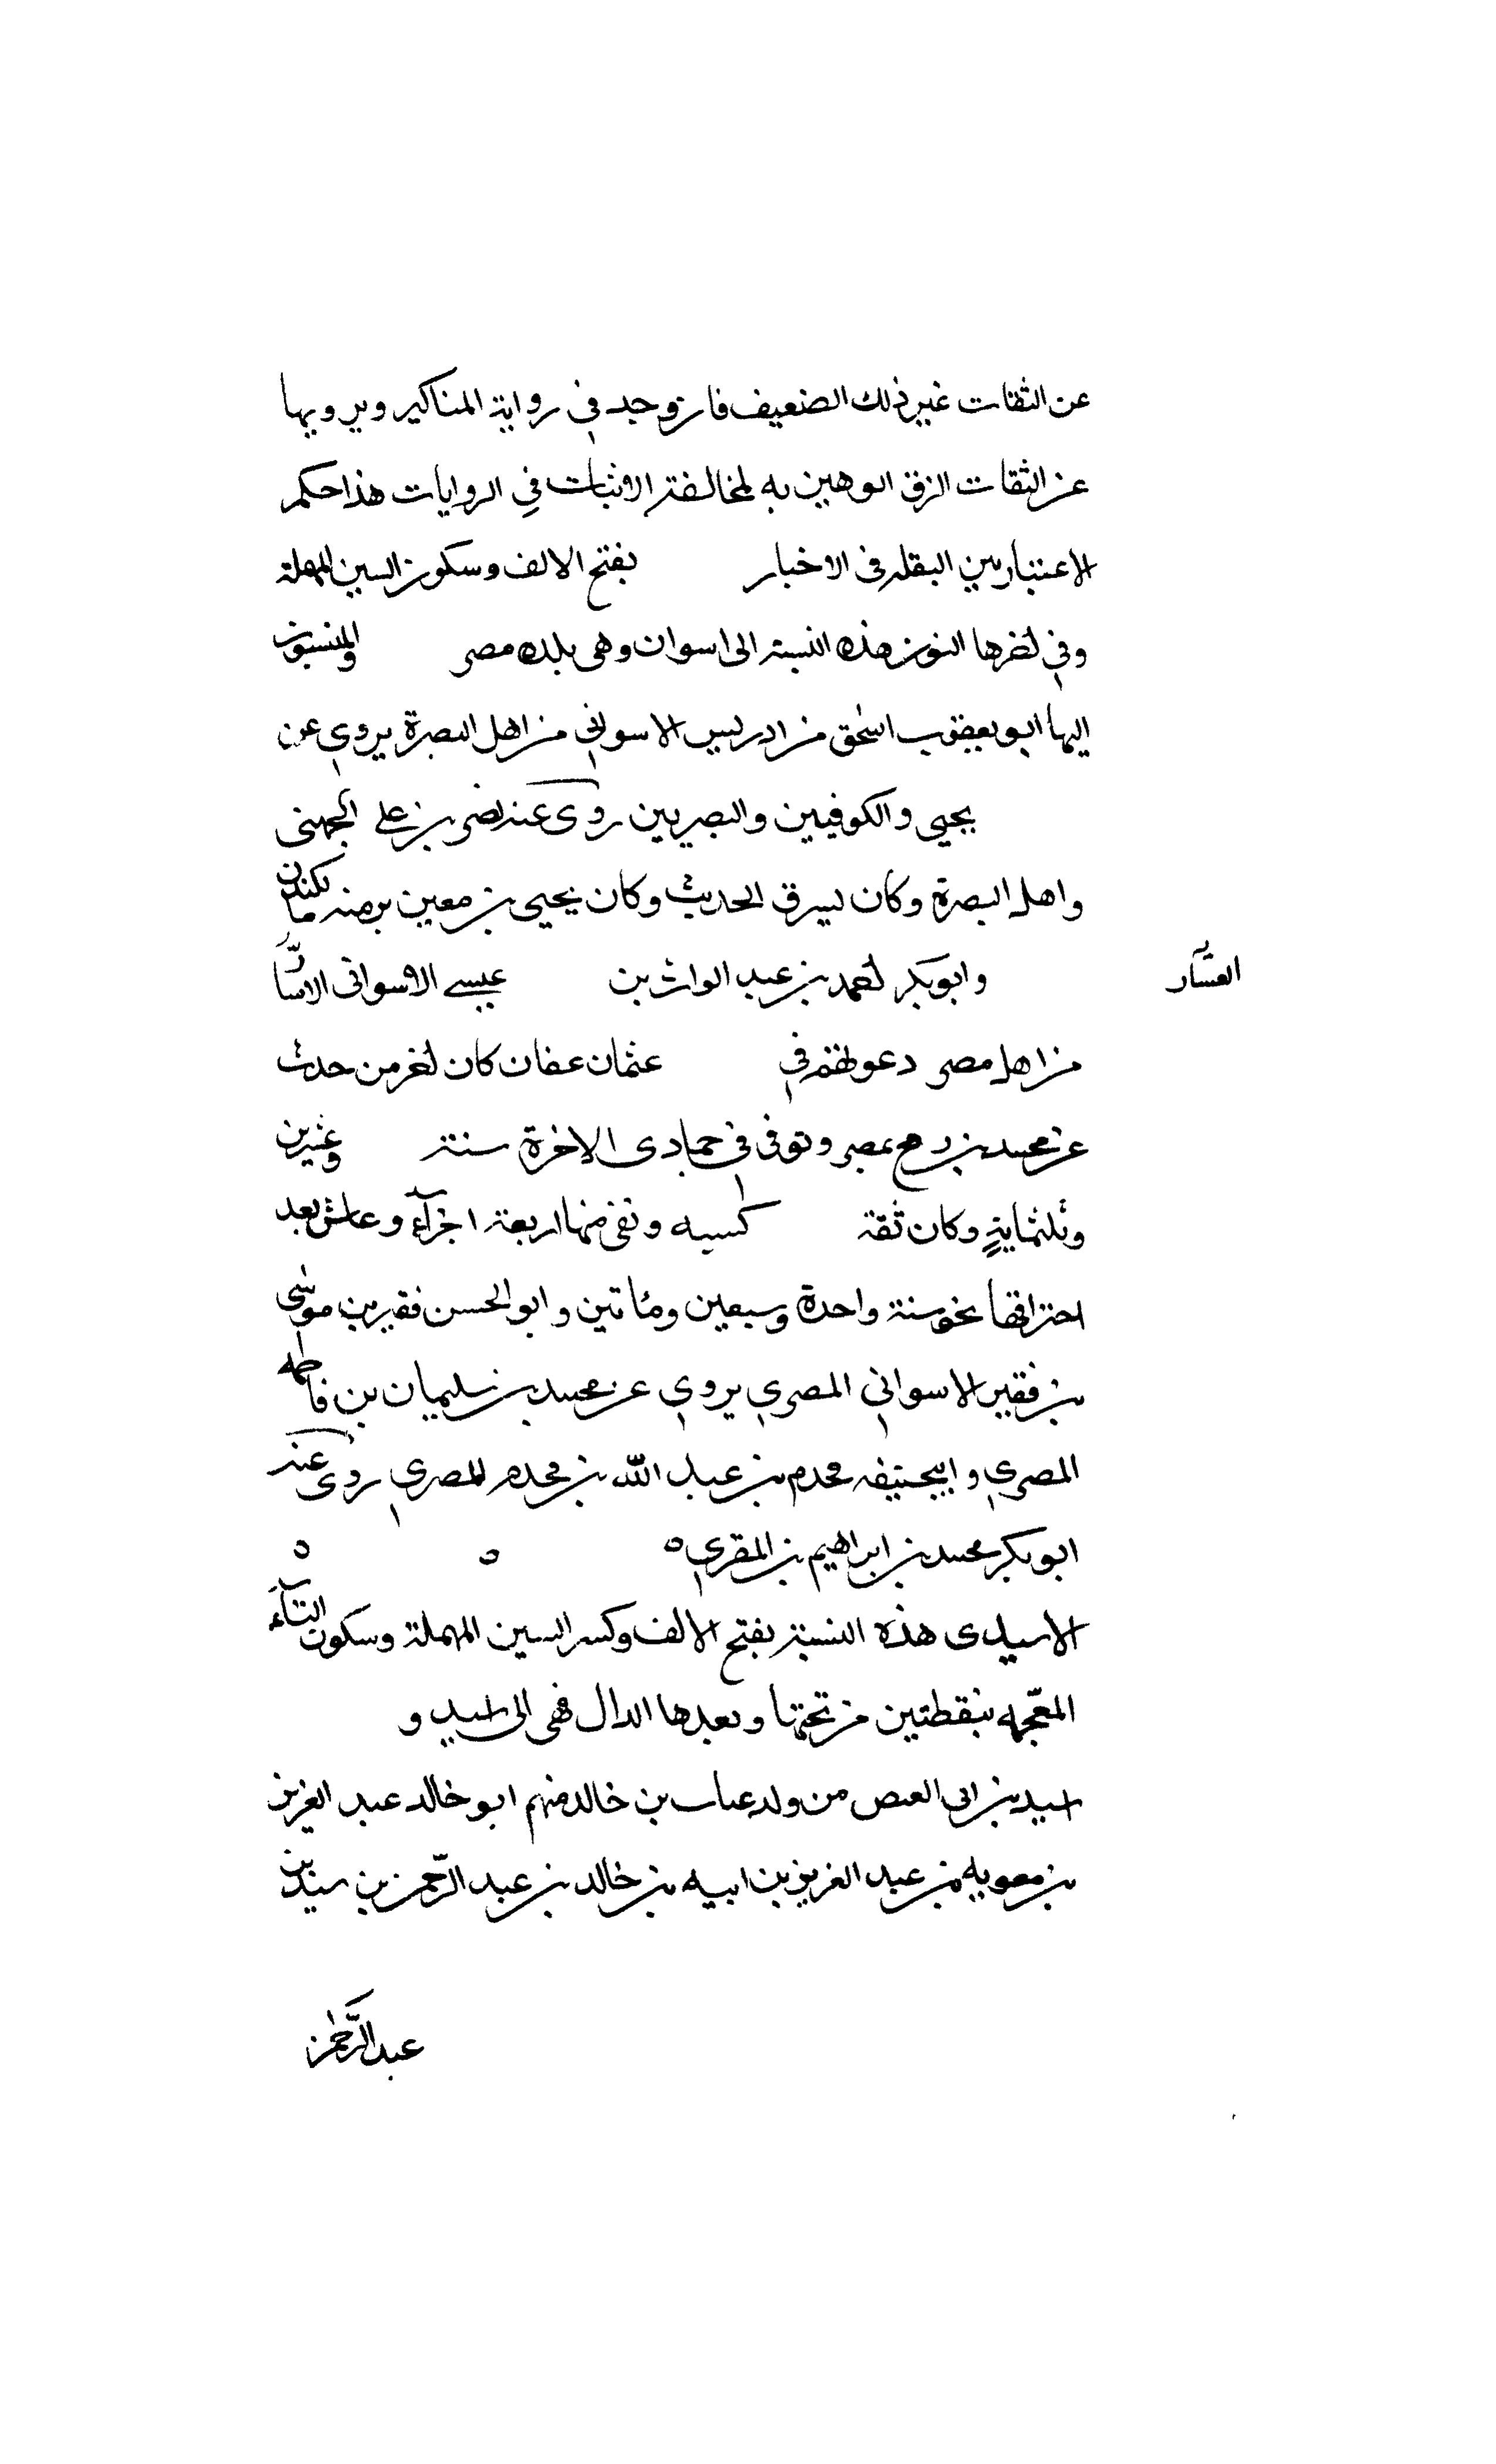 عن الثقات غير ذلك الضعيف فان وجد في رواية المناكير ويرويها
عن الثقات الزق الوهين به لمخالفته الاثبات في الروايات هذا حكم
الاعتبار بين النقله في الاخبار بفتح الالف وسكون السين المهملة
وفي اخرها النون هذه النسبة الى اسوان وهي بلده مصر والمنسوب
اليها ابو يعقوب اسحق بن ادريس الاسواني من اهل البصرة يروي عن
يحيى والكوفيين والبصريين روى عنه نصر بن علي الجهضمي
واهل البصرة وكان يسرق الحديث وكان يحيى بن معين يرميه بالكذب
وابو بكر احمد بن عبد الوارث بن عيسى الاسواني
العسار
من اهل مصر دعوتهم في عثمان عفان كان اخر من حدث
عن محمد بن رمح بمصر وتوفي في جمادى الاخرة سنة وعشرين
وثلثماية وكان ثقة كتبه وبقي منها اربعة اجزآء وعاش بعد
احتراقها نحو سنة واحدة وسبعين ومائتين وابو الحسن فقير بن موسى
بن فقير الاسواني المصري يروي عن محمد بن سليمان بن فاطمه
المصري وابي حنيفه محمد بن عبد الله بن مخدم المصري روى عنه
ابو بكر محمد بن ابراهيم بن المقري ه ه ه
الاسيدى هذه النسبة بفتح الالف وكسر السين المهملة وسكون التآء
المعجمه بنقطتين من تحتها وبعدها الدال فهي الى اسيد و
اسيد بن ابي العيص من ولد عتاب بن خالد منهم ابو خالد عبد العزيز
بن معويه بن عبد العزيز بن اميه بن خالد بن عبد الرحمن بن سيد بن
عبد الرحمن